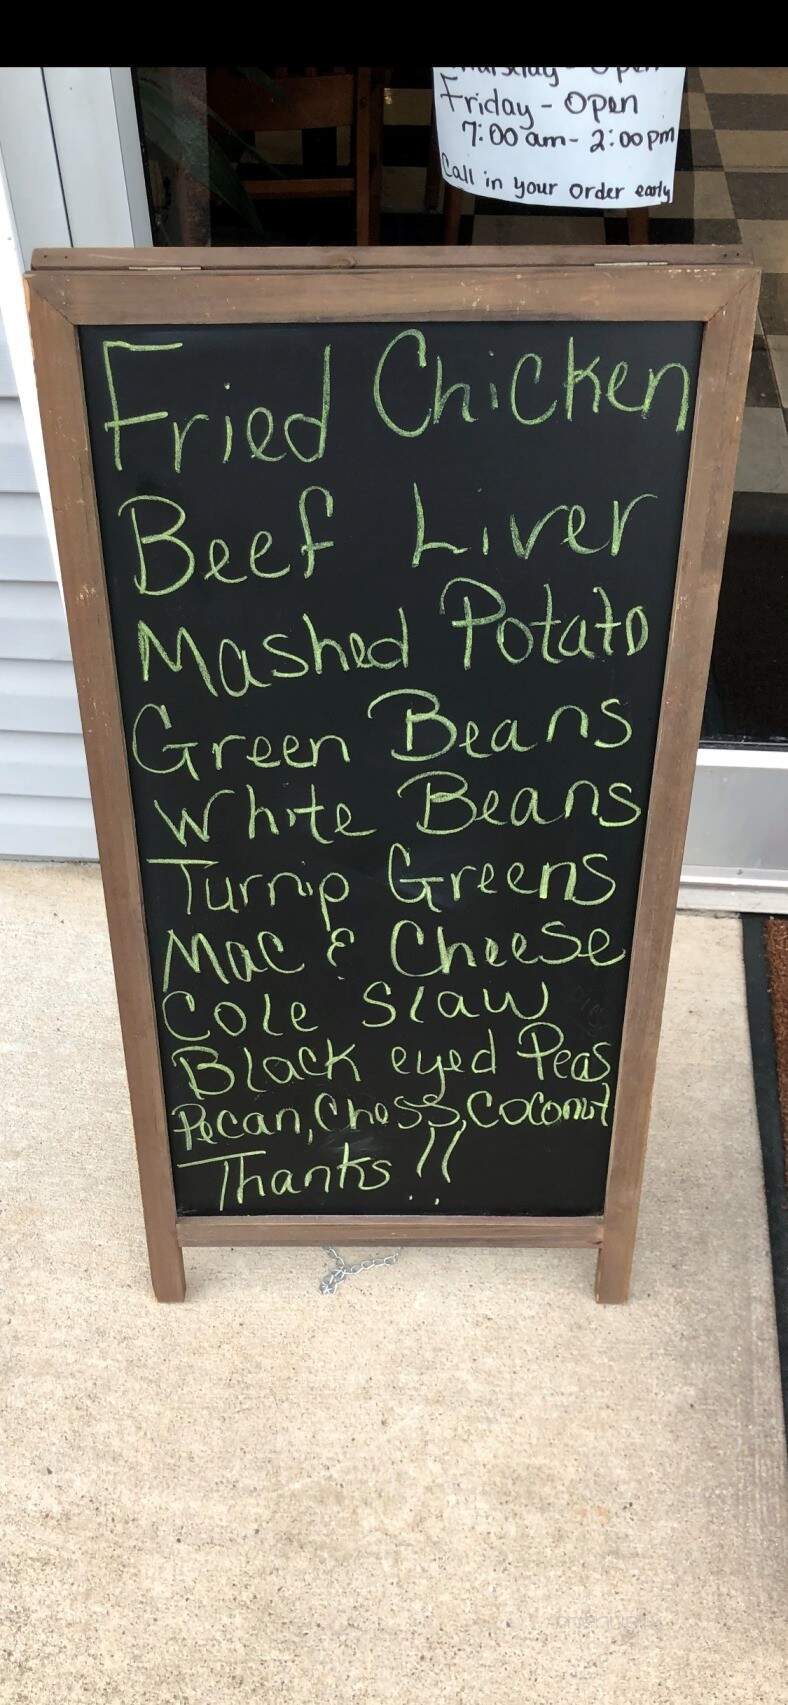 Thursday - Open
Friday - Open
7:00 am - 2:00 pm
Call in your order early
Fried Chicken
Beef Liver
Mashed Potato
Green Beans
White Beans
Turnip Greens
Mac & Cheese
Cole Slaw
Black eyed Peas
Pecan, Chess, Coconut
Thanks!!